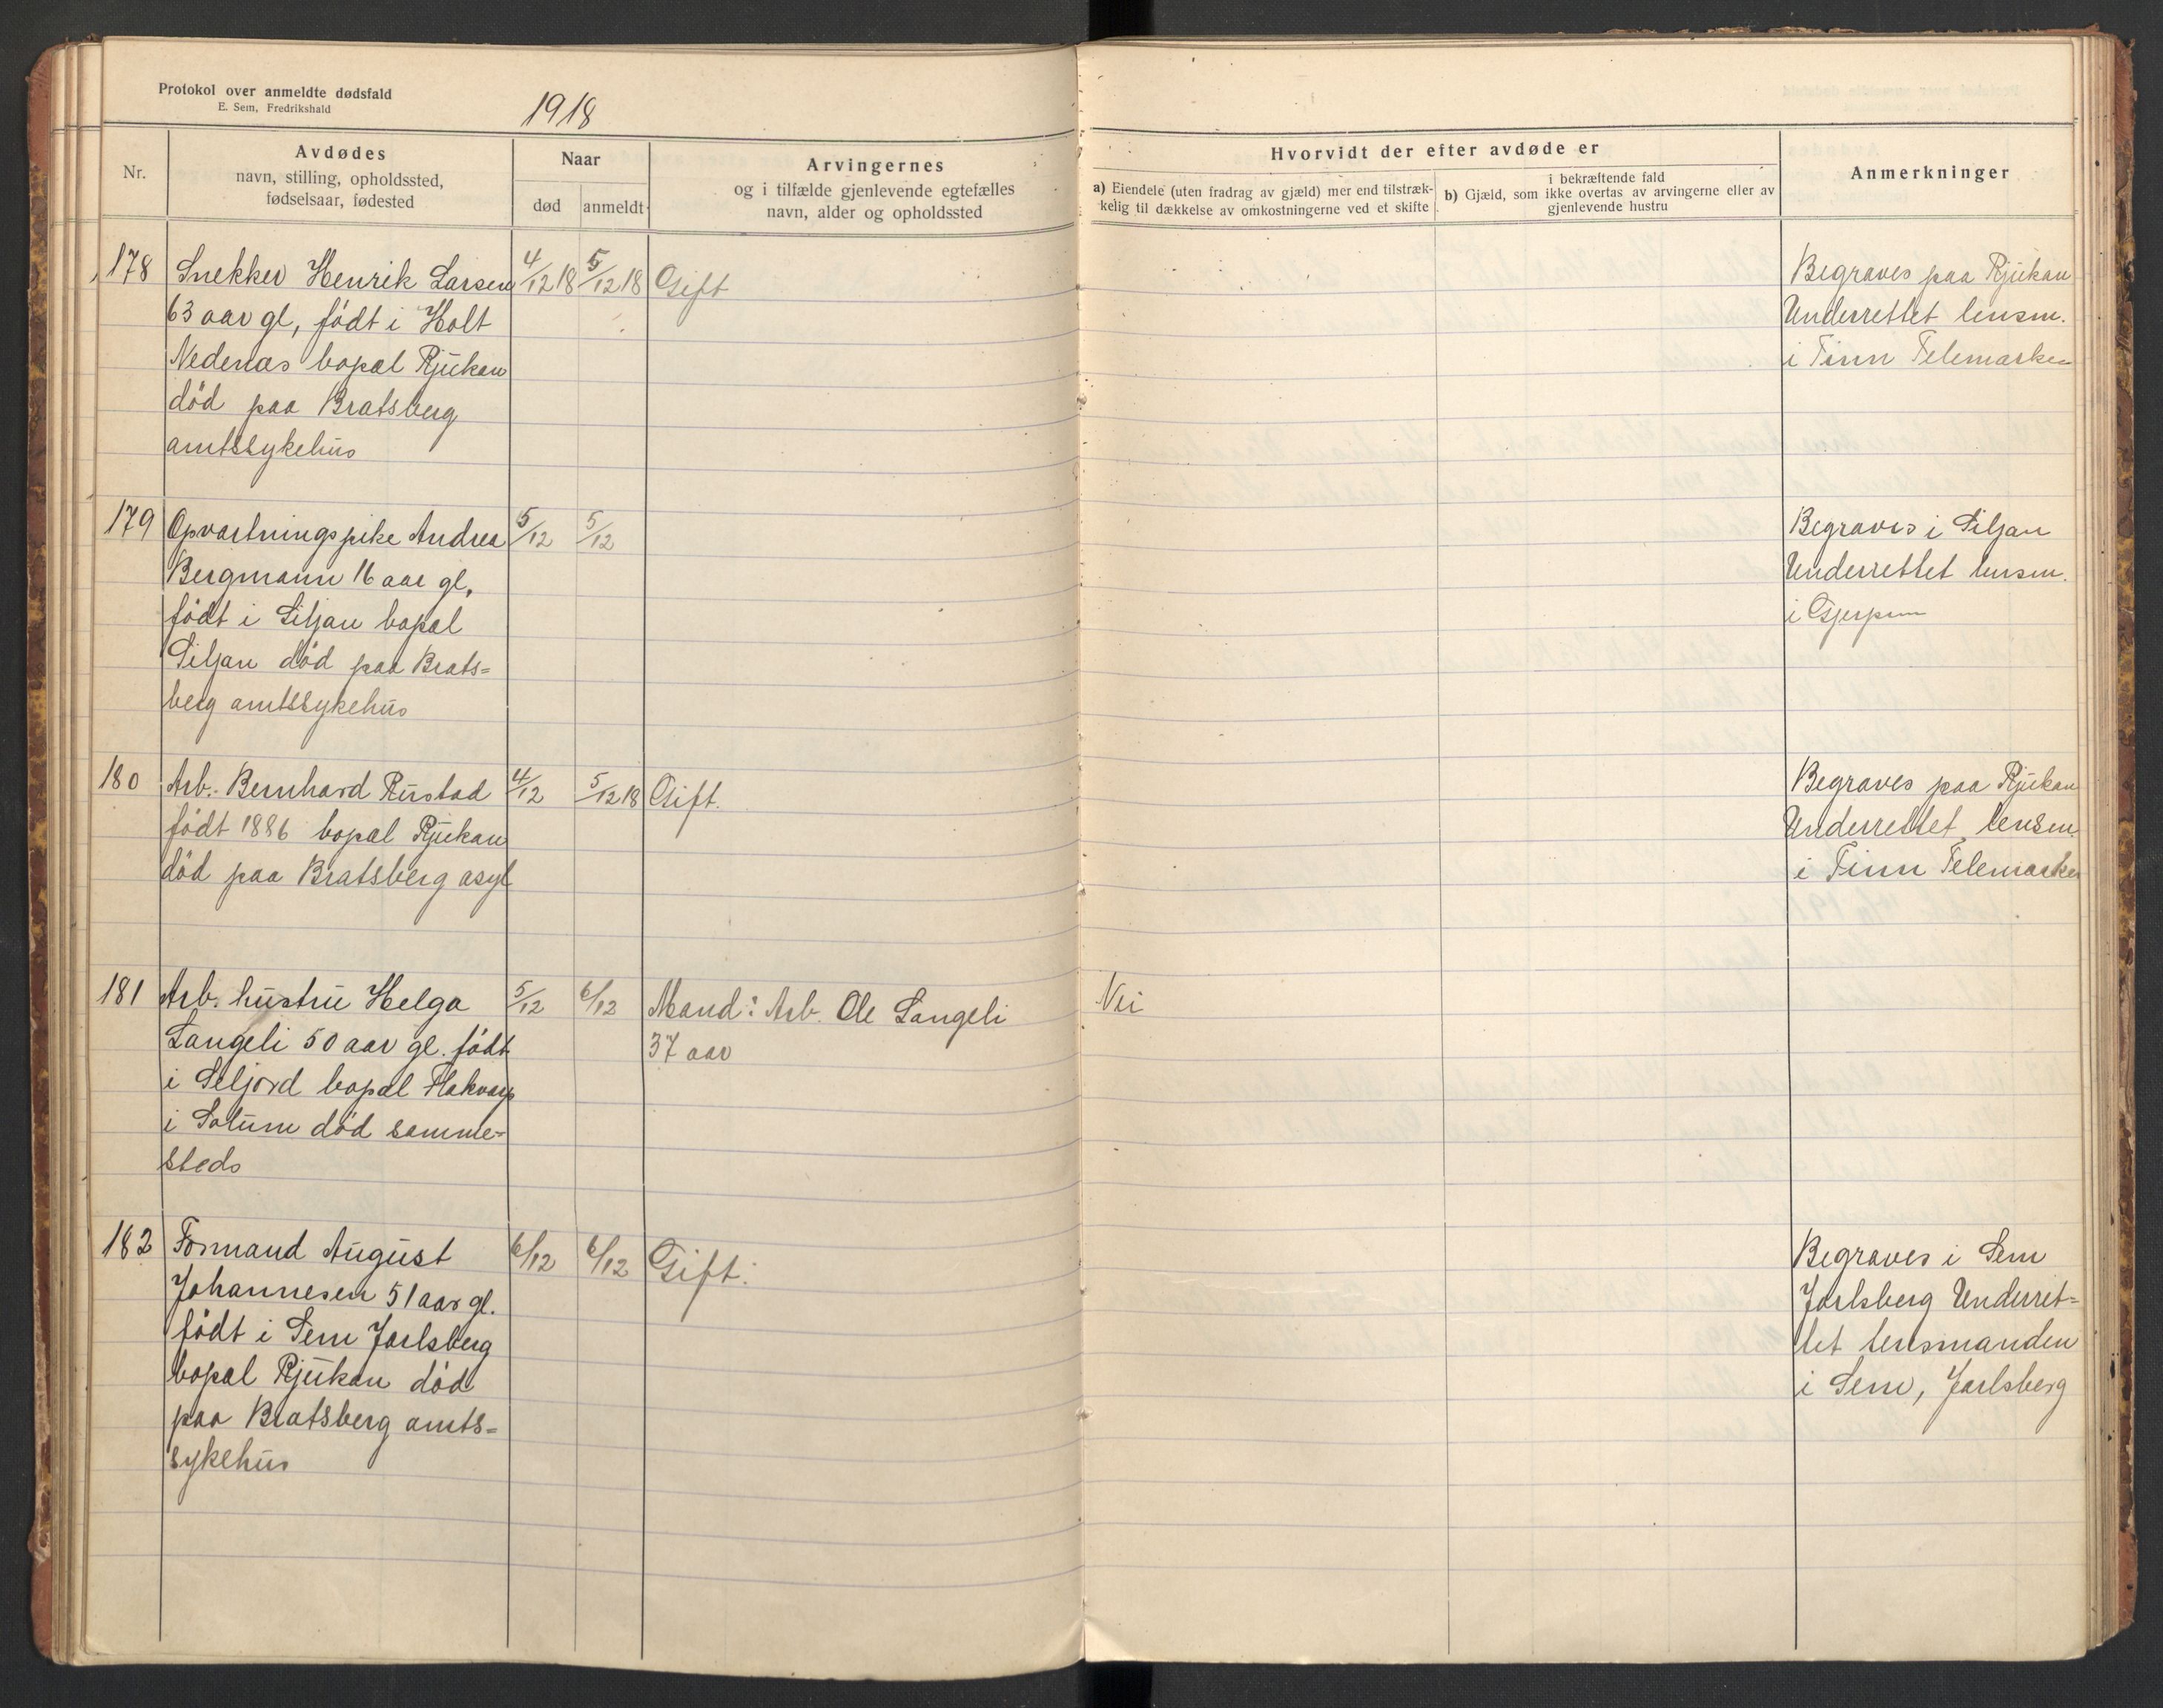 Protokol over anmeldte dødsfald
E. Sem, Fredrikshald
1918
Nr.
Avdødes
navn, stilling, opholdssted,
fødselsaar, fødested
Naar
død
anmeldt
Arvingernes
og i tilfælde gjenlevende egtefælles
navn, alder og opholdssted
Hvorvidt der efter avdøde er
a) Eiendele (uten fradrag av gjæld) mer end tilstræk-
kelig til dækkelse av omkostningerne ved et skifte
i bekræftende fald
b) Gjæld, som ikke overtas av arvingerne eller av
gjenlevende hustru
Anmerkninger
178 Snekker Henrik Larsen 4/12 18 5/12 18 Gift
63 aar gl, født i Holt
Nedenæs bopæl Rjukan
død paa Bratsberg
amtssykehus
Begraves paa Rjukan
Underrettet lensm.
i Tinn Telemarken
179 Opvartningspike Andrea 5/12 5/12
Bergmann 16 aar gl,
født i Siljan bopæl
Siljan død paa Brats=
berg amtssykehus
Begraves i Siljan
Underrettet lensm.
i Gjerpen
180 Arb. Bernhard Rustad 4/12 5/12 18 Gift.
født 1886 bopæl Rjukan
død paa Bratsberg asyl
Begraves paa Rjukan
Underrettet lensm.
i Tinn Telemarken
181 Arb. hustru Helga 5/12 6/12 Mand: Arb. Ole Langeli Nei
Langeli 50 aar gl. født 37 aar
i Seljord bopæl Flakvarp
i Solum død samme=
steds
182 Formand August 6/12 6/12 Gift.
Johannesen 51 aar gl.
født i Sem Jarlsberg
bopæl Rjukan død
paa Bratsberg amts=
sykehus
Begraves i Sem
Jarlsberg Underret=
tet lensmanden
i Sem, Jarlsberg